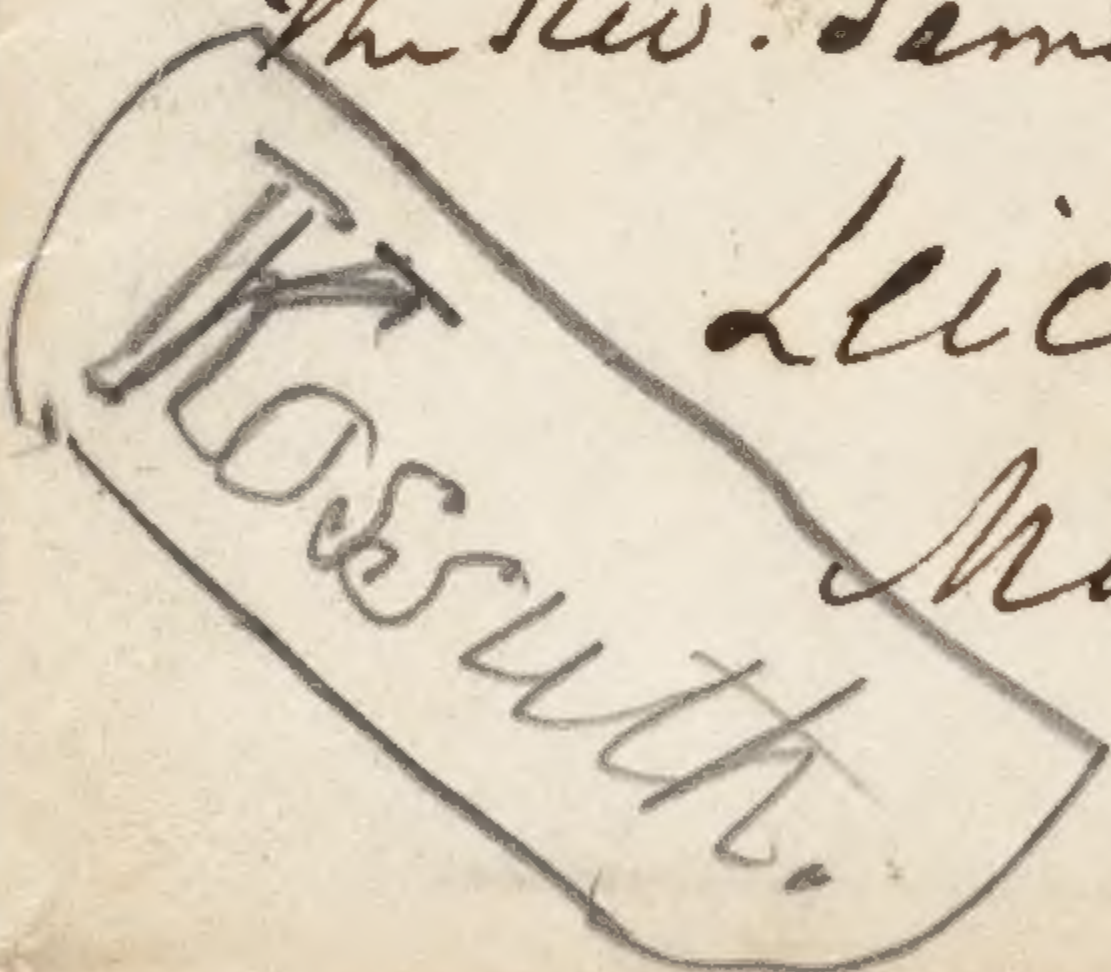 The Rev. Sam
Leic
Kossuth.